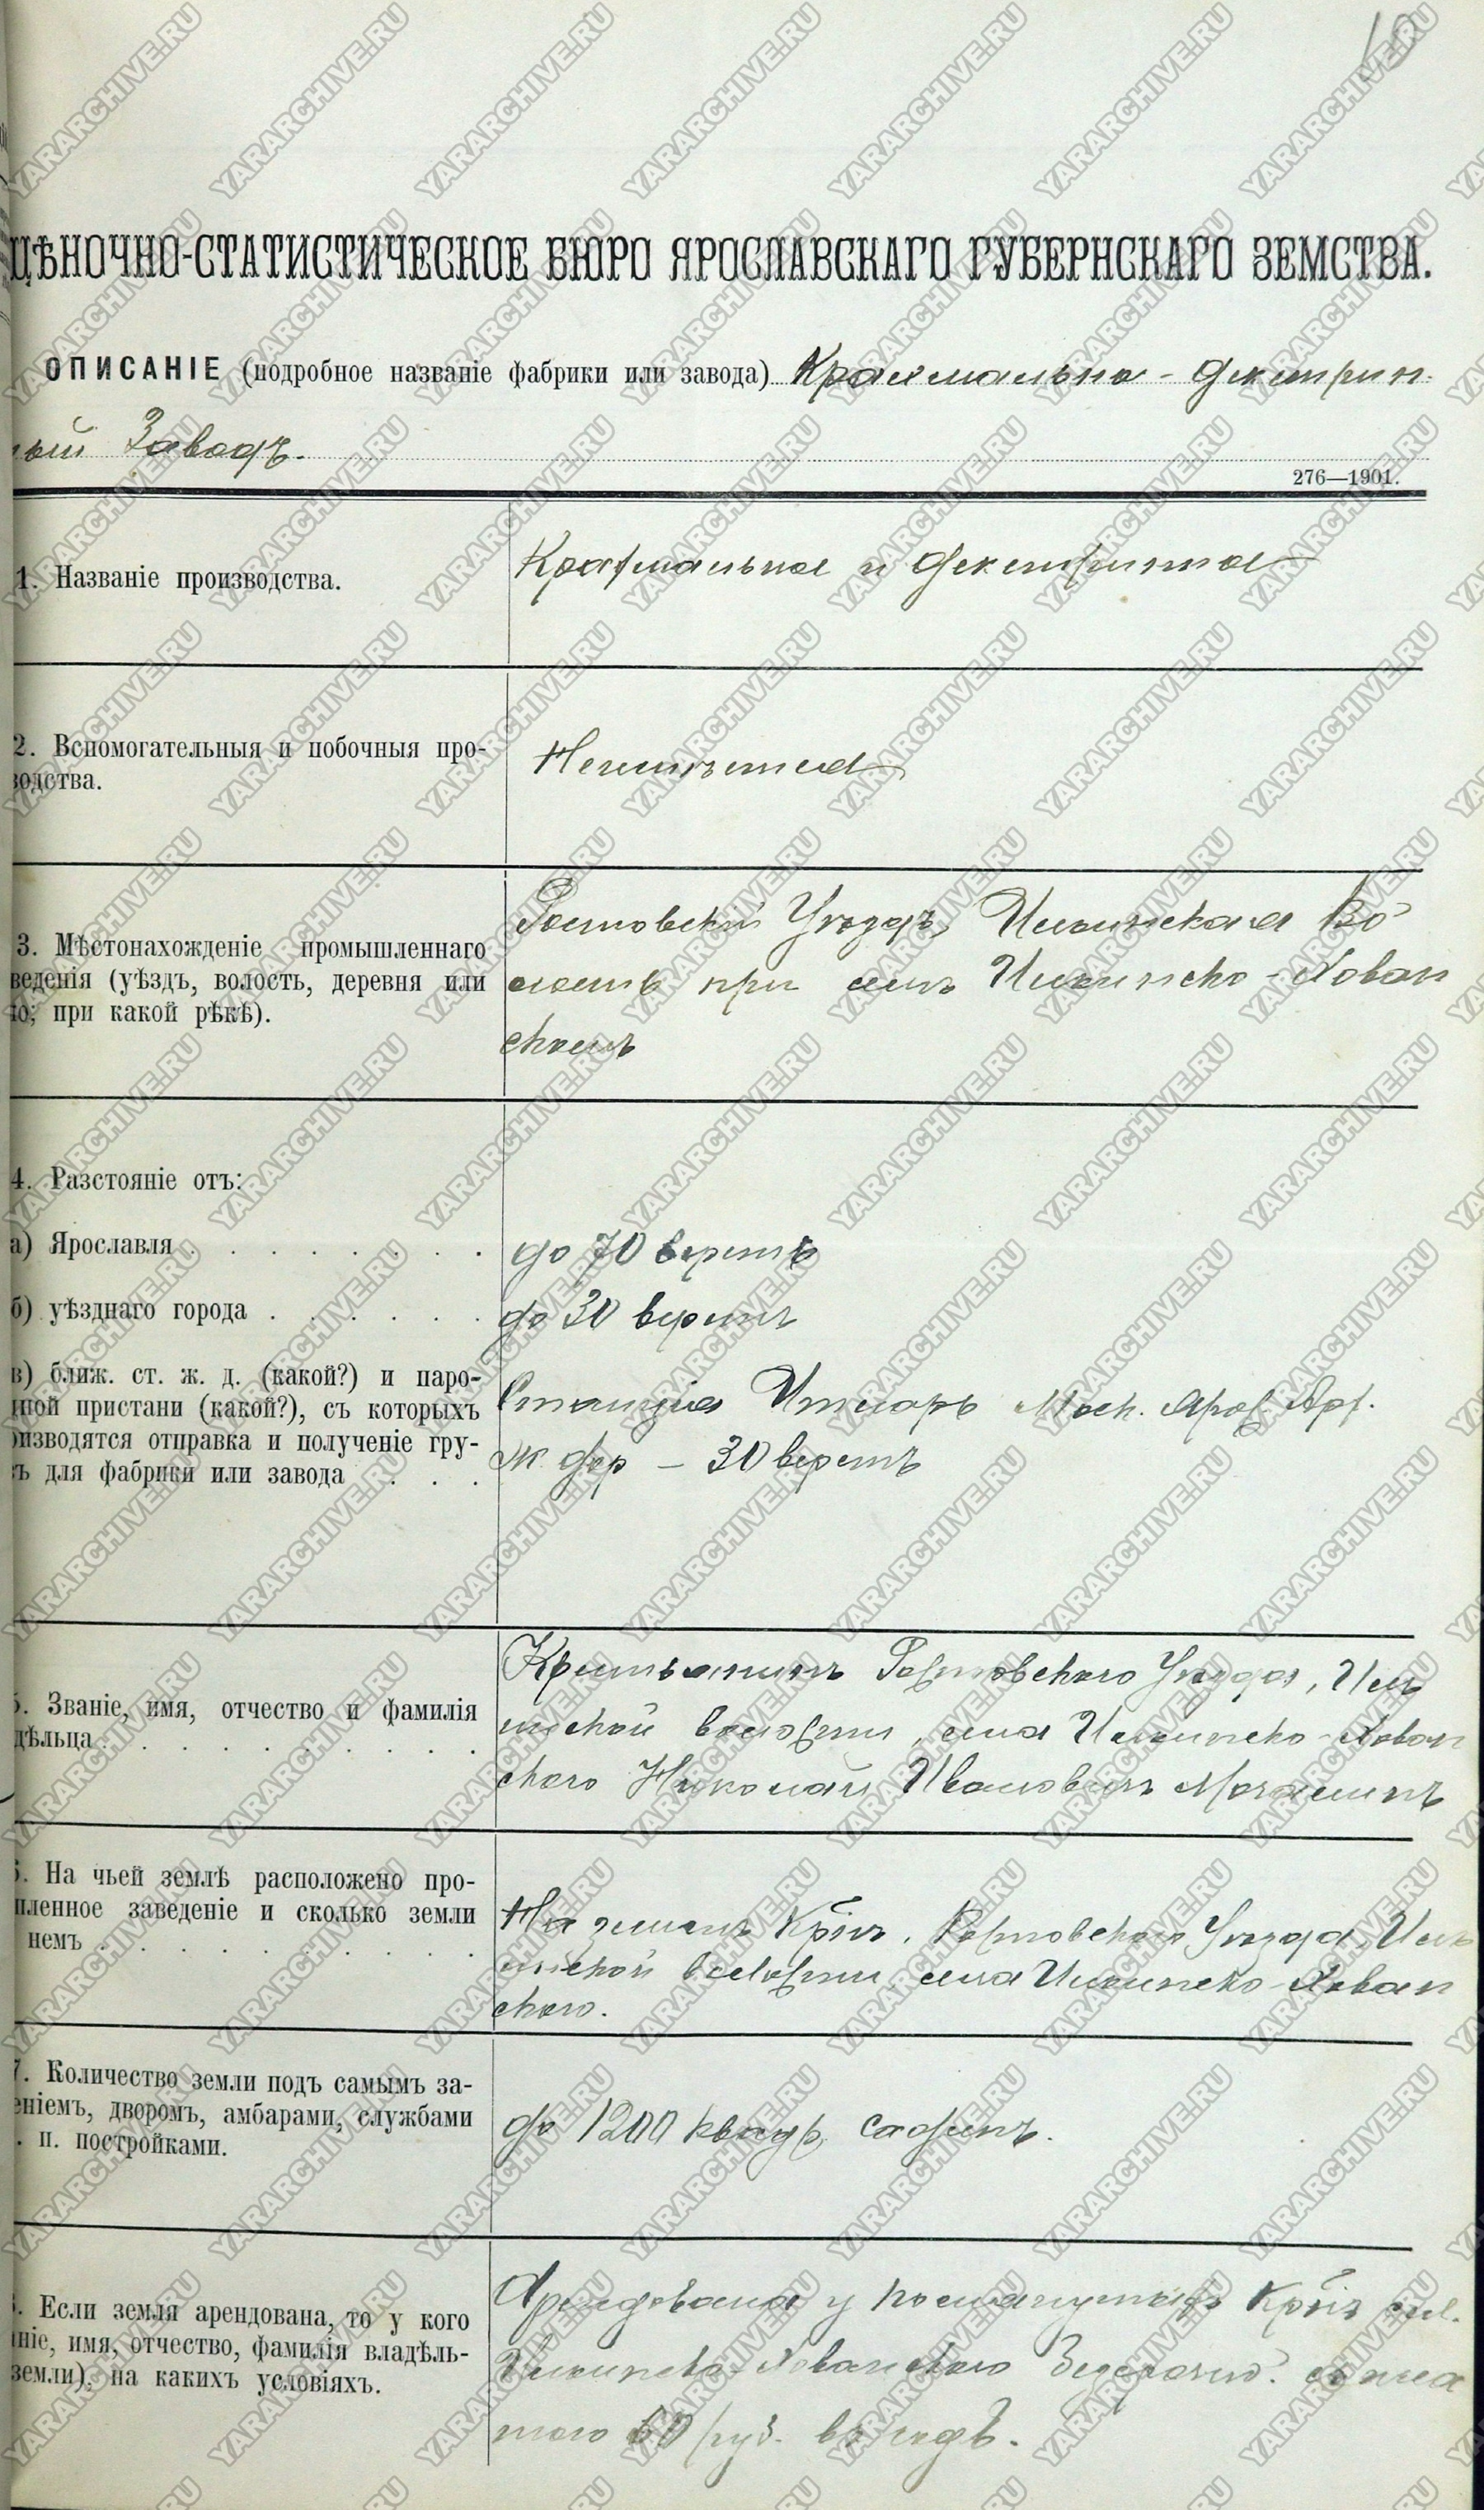 10
ЦѢНОЧНО-СТАТИСТИЧЕСКОЕ БЮРО ЯРОСЛАВСКАГО ГУБЕРНСКАГО ЗЕМСТВА.
ОПИСАНІЕ (подробное названіе фабрики или завода) Крахмально - декстрин-
ный Заводъ.
276—1901.
1. Названіе производства.
Крахмальное и декстринное
2. Вспомогательныя и побочныя про-
водства.
Неимѣется
3. Мѣстонахожденіе промышленнаго
веденія (уѣздъ, волость, деревня или
ло; при какой рѣкѣ).
Ростовскій Уѣздъ, Ильинская Во
лость при селѣ Ильинско-Хован
скомъ
4. Разстояніе отъ:
а) Ярославля
до 70 верстъ
б) уѣзднаго города
до 30 верстъ
в) ближ. ст. ж. д. (какой?) и паро-
дной пристани (какой?), съ которыхъ
оизводятся отправка и полученіе гру-
ъ для фабрики или завода
Станція Итларь Моск. Яросл. Арх.
ж. дор — 30 верстъ
5. Званіе, имя, отчество и фамилія
дѣльца
Крестьянинъ Ростовскаго Уѣзда, Иль
инской волости, села Ильинско-Хован
скаго Николай Ивановичъ
6. На чьей землѣ расположено про-
шленное заведеніе и сколько земли
немъ
На землѣ Кр., Ростовскаго Уѣзда, Иль
инской волости села Ильинско-Хован
скаго.
7. Количество земли подъ самымъ за-
еніемъ, дворомъ, амбарами, службами
п. постройками.
до 1200 квадр. саженъ.
8. Если земля арендована, то у кого
ніе, имя, отчество, фамилія владѣль-
земли), на какихъ условіяхъ.
Арендована у Кр. сел.
Ильинско-Хованскаго
60 руб. въ годъ.
YARARCHIVE.RU